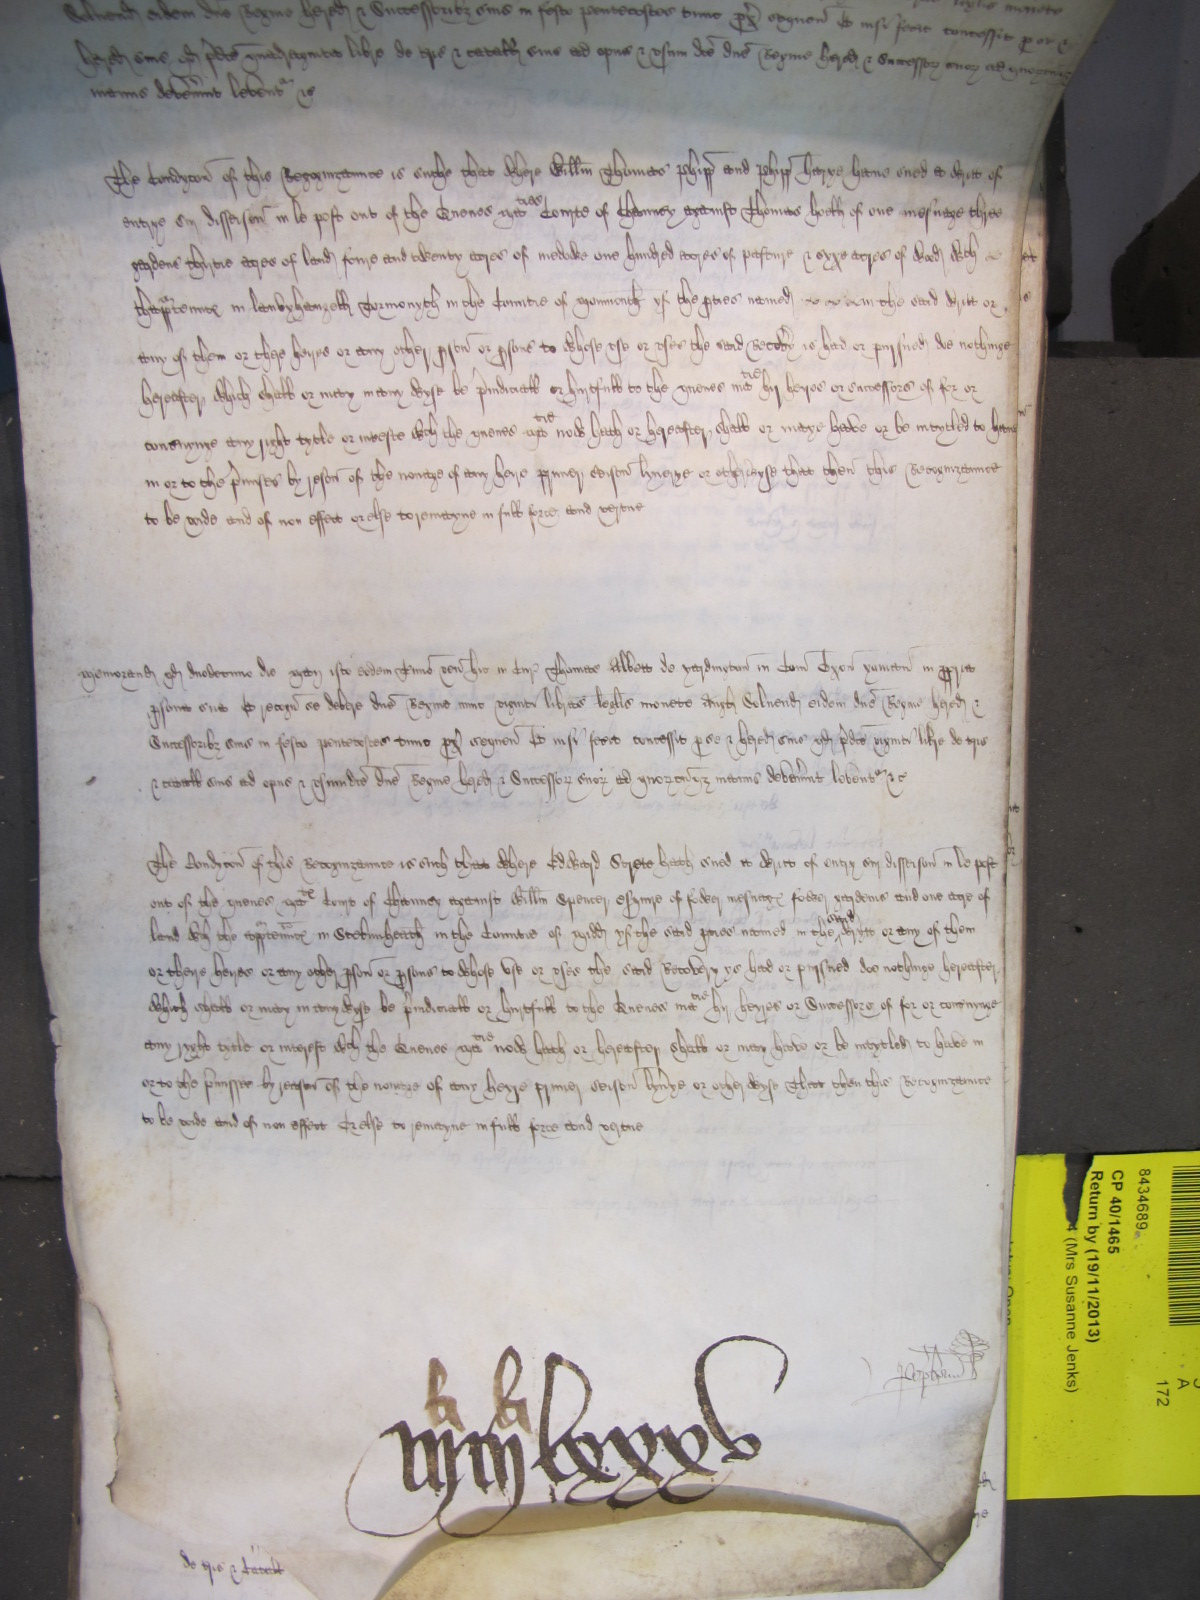 Solvend eidem dne Regine hered & Successoribz suis in festo pentecostes tunc px sequen Et nisi fecit concessit p se &
hered suis qd pdce quadraginta libre de tris & catall suis ad opus & usum dce dne Regine hered & Successor suor ad quorcumqz
manus devenint leventr &c
The Condycon of this Recognizance is suche that where Willm Thomas phipp and phipp harye have sued a writt of
entrye sur disseison in le post out of the Quenes maties Courte of Chauncy against Thomas of one mesuage three
gardens thirtie acres of land foure and twenty acres of medowe one hundred acres of pasture & syxe acres of wood wth
thapptenncs in in the Countie of Monmouth yf the pties named in the said writt or
any of them or there heyres or any other pson or psons to whose use or uses the said Recovry is had or pursued doe nothinge
hereafter which shall or may in any wyse be piudiciall or hurtfull to the quenes matie hir heires or successors of for or
concernynge any right tytle or intereste wch the quenes matie nowe hath or hereafter shall or maye have or be intytled to have
in or to the pmises by reson of the nonage of any heire prymer seison lyverye or otherwyse that then this Recognizance
to be voide and of non effect or else to remayne in full force and vertue
Memorand qd duodecimo die Maij isto eodem Termino ven hic in Cur Thomas Abbott de yardington in Com Oxon yoman in ppria
psona sua Et recogn se debere dne Regine nunc viginti libras legalis monete Angl Solvend eidem dne Regine hered &
Successoribz suis in festo pentecostes tunc px sequen Et nisi fecit concessit p se & hered suis qd pdce viginti libre de tris
& catall suis ad opus & usum dce dne Regine hered & Successor suor ad quorcumqz manus devenint leventr &c
The Condycon of this Recognizance is such that where Edward Strete hath sued a writt of entry sur disseison in le post
out of the quenes matie Court of Chauncy against Willm Spencer esquire of fower mesuags fower gardens and one acre of
land wth the apptenncs in Stebunheath in the Countie of Midd yf the said pties named in the said wrytt or any of them
or theire heyres or any other pson or psons to whose use or uses the said Recovery ys had or pursued doe nothinge hereafter
which shall or may in any wyse be piudiciall or hurtfull to the Quenes matie hir heyres or Successors of for or concernynge
any ryght tytle or interest wch the Quenes matie nowe hath or hereafter shall or may have or be intytled to have in
or to the pmisses by reason of the nonage of any heyre prymer seison lyverye or otherwyse That then this Recognizance
to be voide and of non effect Or else to remayne in full force and vertue
8434689
CP 40/1465
Return by (19/11/2013)
(Mrs Susanne Jenks)
A
172
de tris & Catall